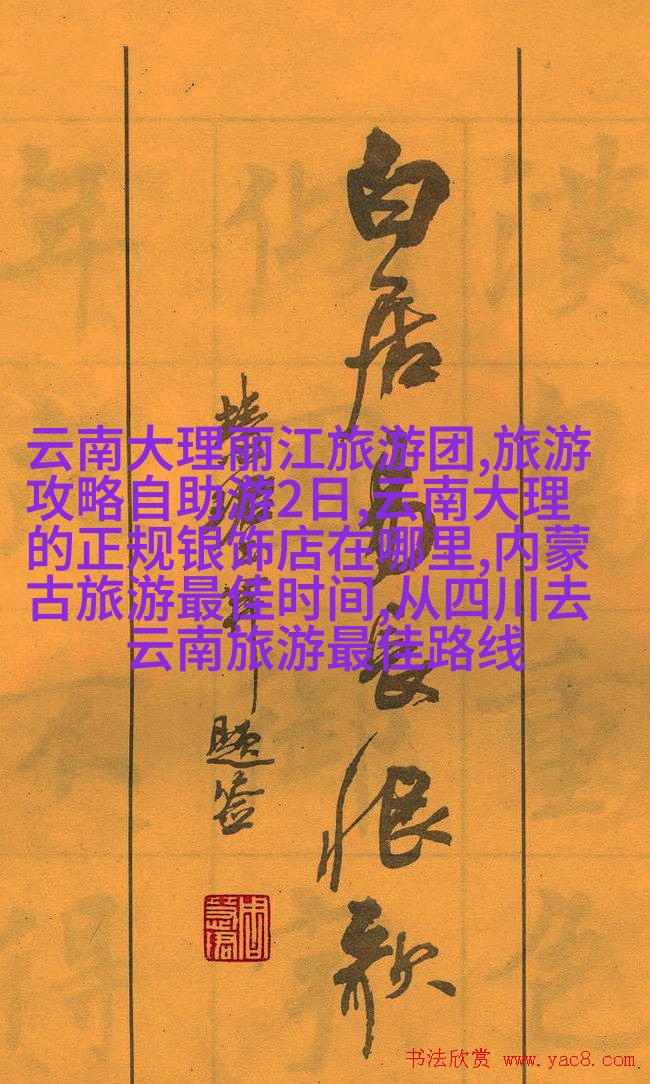 白居易长恨歌
题签
云南大理丽江旅游团,旅游
攻略自助游2日,云南大理
的正规银饰店在哪里,内蒙
古旅游最佳时间,从四川去
云南旅游最佳路线
书法欣赏 www.yac8.com